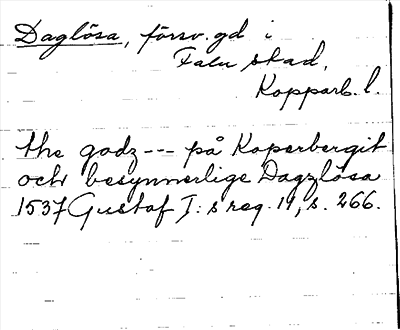 Daglösa, försv. gd i
Falu stad,
Kopparb. l.
the godz --- på Koperbergit
och besynnerlige Dagzlösa
1537 Gustaf I:s reg. 11, s. 266.